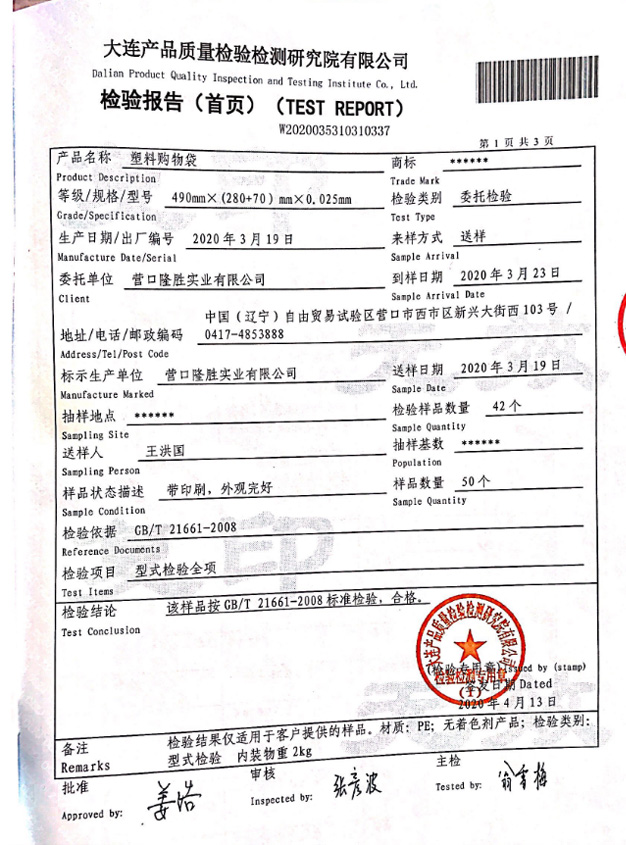 大连产品质量检验检测研究院有限公司
Dalian Product Quality Inspection and Testing Institute Co., Ltd.
检验报告（首页）（TEST REPORT）
W2020035310310337
第 1 页 共 3 页
产品名称 塑料购物袋 商标 ******
Product Description Trade Mark
等级/规格/型号 490mm×(280+70) mm×0.025mm 检验类别 委托检验
Grade/Specification Test Type
生产日期/出厂编号 2020 年 3 月 19 日 来样方式 送样
Manufacture Date/Serial Sample Arrival
委托单位 营口隆胜实业有限公司 到样日期 2020 年 3 月 23 日
Client Sample Arrival Date
中国（辽宁）自由贸易试验区营口市西市区新兴大街西 103 号 /
地址/电话/邮政编码 0417-4853888
Address/Tel/Post Code
标示生产单位 营口隆胜实业有限公司 送样日期 2020 年 3 月 19 日
Manufacture Marked Sample Date
抽样地点 ****** 检验样品数量 42 个
Sampling Site Sample Quantity
送样人 王洪国 抽样基数 ******
Sampling Person Population
样品状态描述 带印刷，外观完好 样品数量 50 个
Sample Condition Sample Quantity
检验依据 GB/T 21661-2008
Reference Documents
检验项目 型式检验全项
Test Items
检验结论 该样品按 GB/T 21661-2008 标准检验，合格。
Test Conclusion
大连产品质量检验检测研究院有限公司
检验检测专用章
(检验专用章) Issued by (stamp)
签发日期 Dated
2020 年 4 月 13 日
备注 检验结果仅适用于客户提供的样品。材质：PE；无着色剂产品；检验类别：
Remarks 型式检验 内装物重 2kg
批准 审核 主检
Approved by: 姜浩 Inspected by: 张彦波 Tested by: